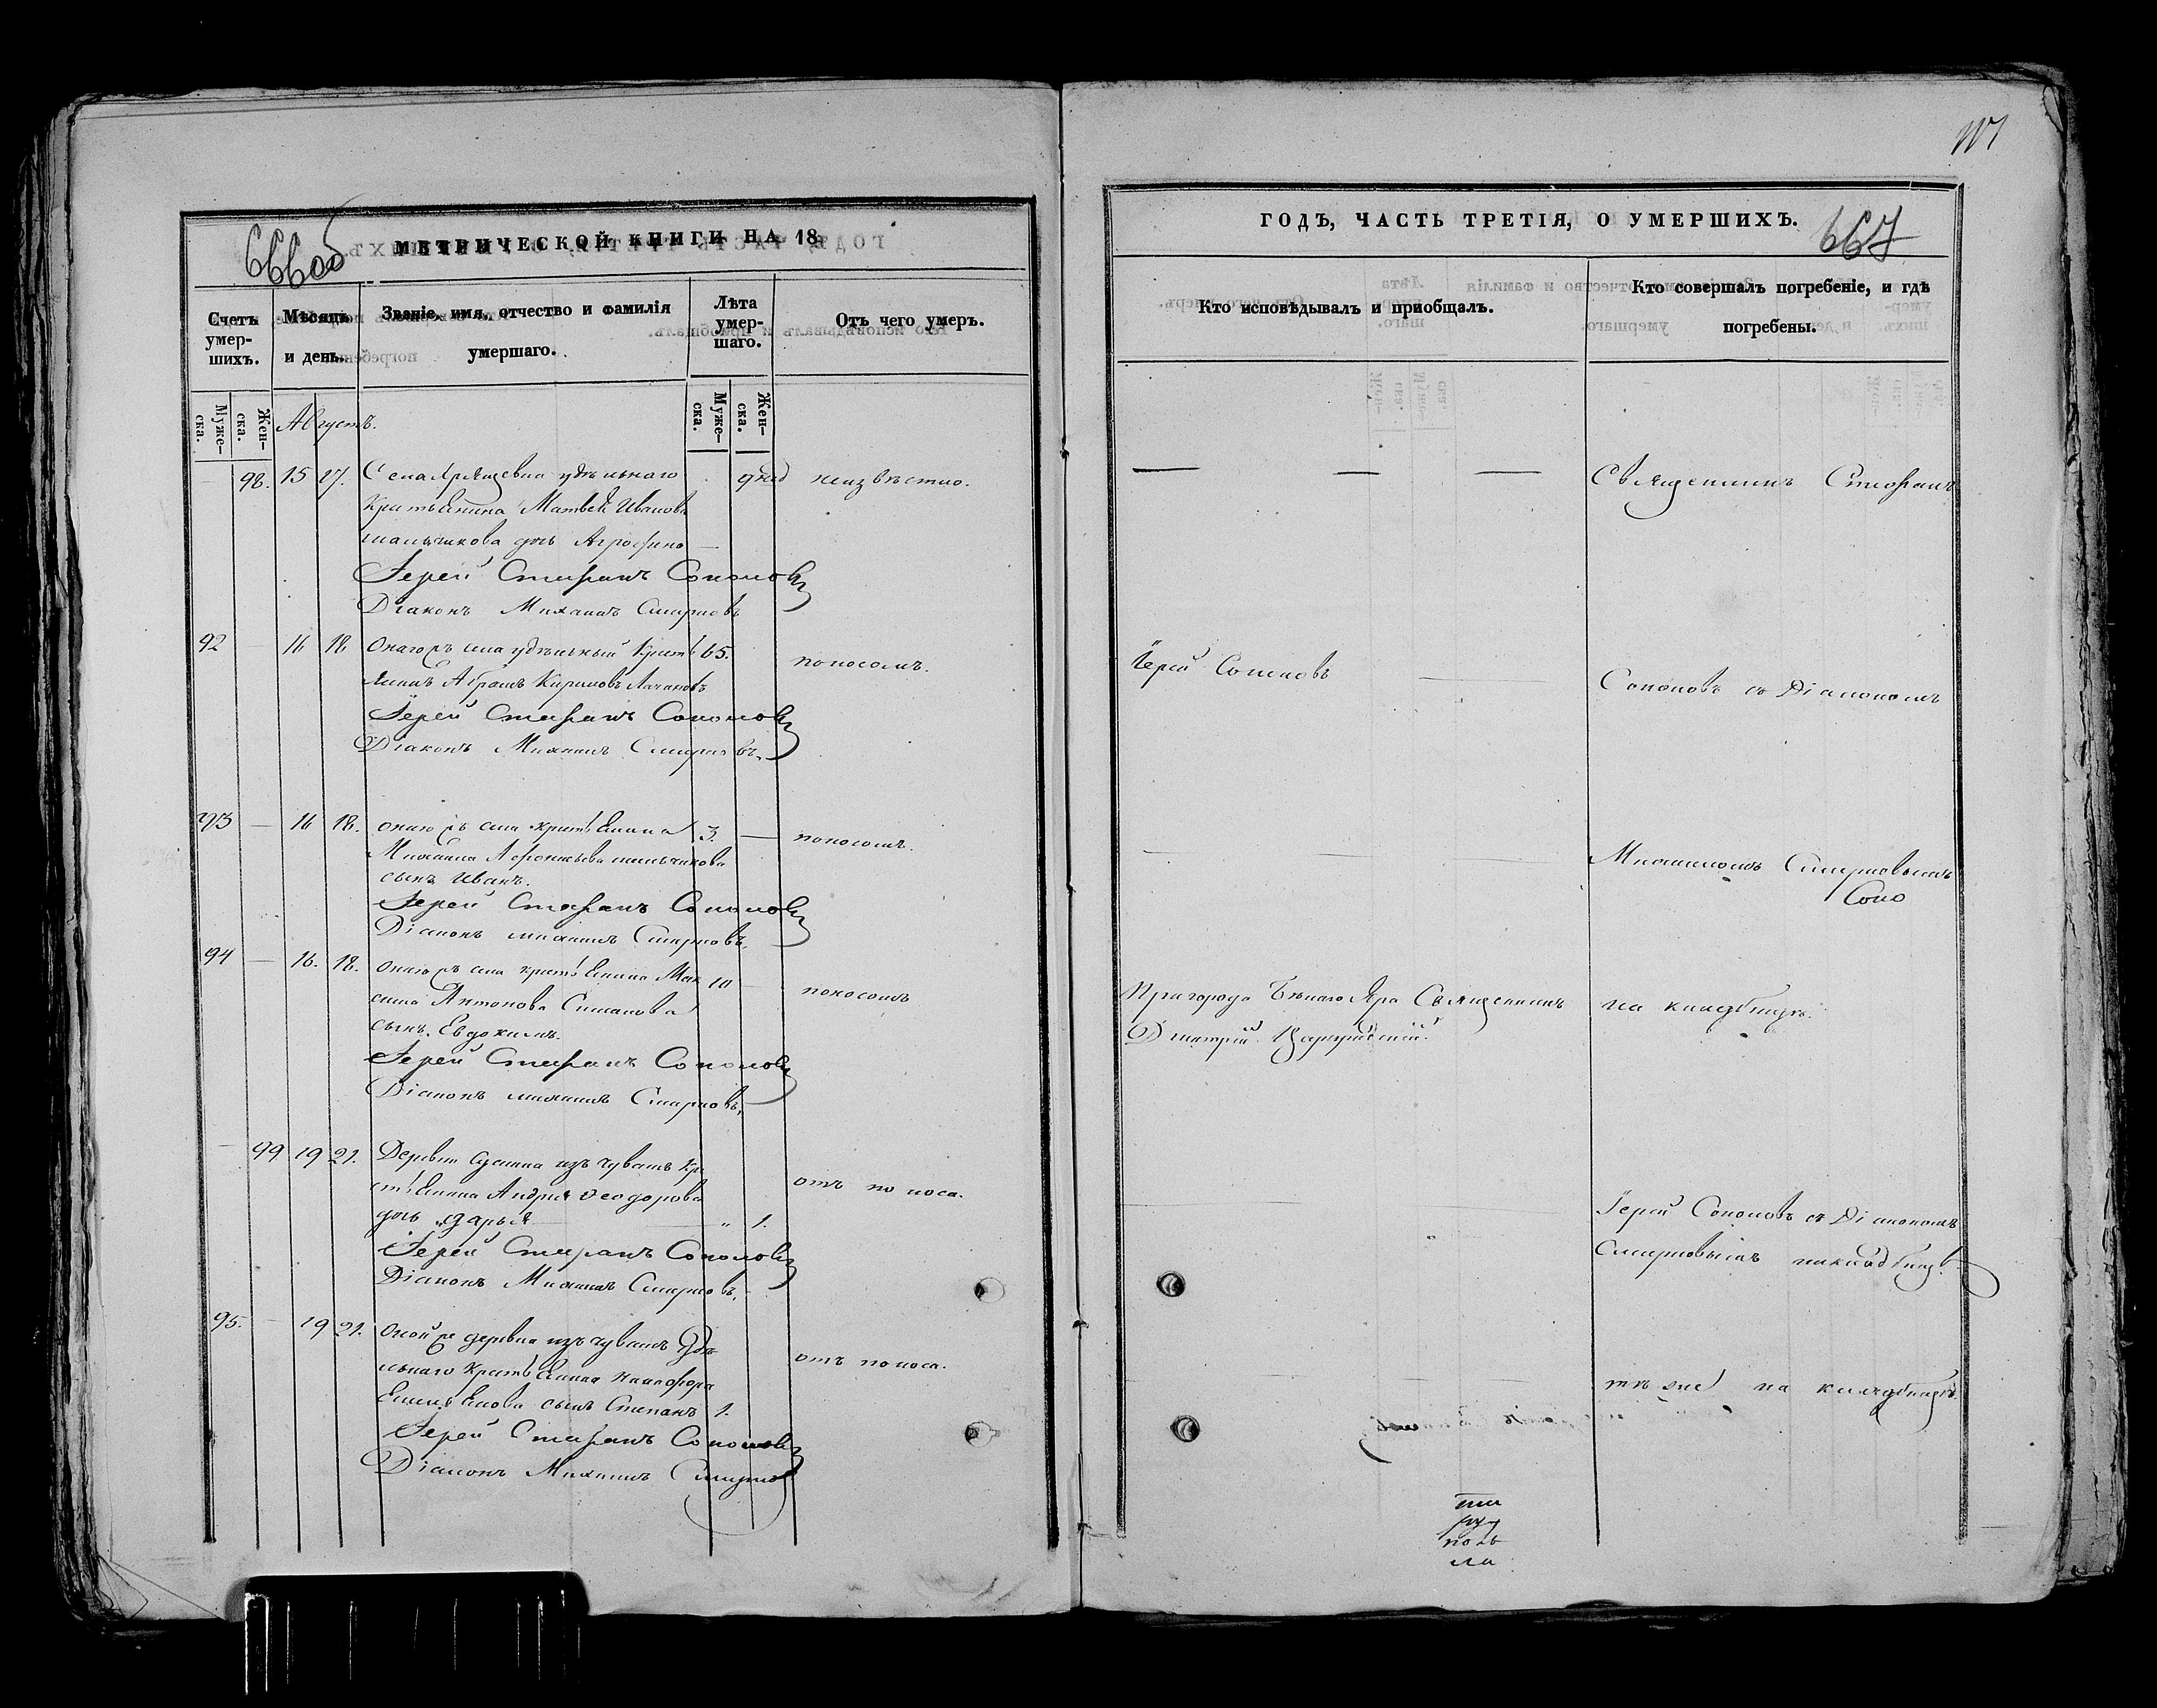 666 об
МЕТРИЧЕСКОЙ КНИГИ НА 18
Счетъ умер-шихъ.
Мѣсяцъ и день.
Званіе, имя, отчество и фамилія умершаго.
Лѣта умер-шаго.
Отъ чего умеръ.
Муже-ска.
Жен-ска.
Муже-ска.
Жен-ска.
Августъ.
98. 15 17. Села удѣльнаго 9 нед неизвѣстно.
крестьянина Матвея Иванова
дочь Агрофена
Іерей Стефанъ Соколовъ
Діаконъ Михаилъ Смирновъ
92 16 18 Онагожъ села удѣльный крестья 65. поносомъ.
янинъ Абрамъ Кириловъ
Іерей Стефанъ Соколовъ
Діаконъ Михаилъ Смирновъ.
93 — 16 18. онагожъ села крестьянина 3. — поносомъ.
Михаила
сынъ Иванъ.
Іерей Стефанъ Соколовъ
Діаконъ Михаилъ Смирновъ.
94 — 16. 18. онагожъ села крестьянина Мак 10 — поносомъ
сима Антонова
сынъ Евдокимъ.
Іерей Стефанъ Соколовъ
Діаконъ Михаилъ Смирновъ.
— 99 19 21. Деревни изъ чувашъ кре отъ поноса.
стьянина Андрея Ѳеодорова
дочь Дарья — " 1.
Іерей Стефанъ Соколовъ
Діаконъ Михаилъ Смирновъ.
95. — 19 21. Оной же деревни изъ чувашъ Удѣ отъ поноса.
льнаго крестьянина Никифора
сынъ Степанъ 1.
Іерей Стефанъ Соколовъ
Діаконъ Михаилъ Смирновъ
ГОДЪ, ЧАСТЬ ТРЕТІЯ, О УМЕРШИХЪ.
667
Кто исповѣдывалъ и пріобщалъ.
Кто совершалъ погребеніе, и гдѣ погребены.
— — — Священникъ Стефанъ
Іерей Соколовъ — Соколовъ съ Діакономъ
Михаиломъ Смирновымъ
Соко
Пригорода Бѣлаго Яра Священникъ на кладбищѣ.
Дмитрій
Іерей Соколовъ съ Діакономъ
Смирновымъ на кладбищѣ.
тѣ же на кладбищѣ.